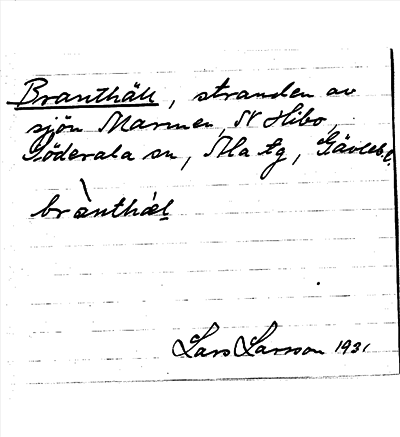 Branthäll, stranden av
sjön Marmen, N Hibo,
Söderala sn, Ala tg, Gävlebl.
brànthæl
Lars Larsson 1931